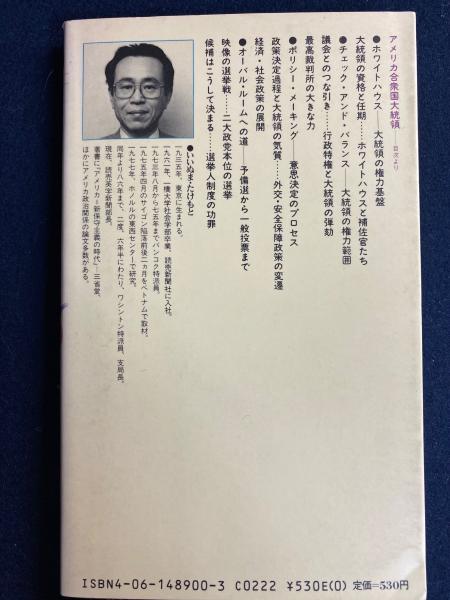 アメリカ合衆国大統領——目次より
●ホワイトハウス——大統領の権力基盤
大統領の資格と任期……ホワイトハウスと補佐官たち
●チェック・アンド・バランス——大統領の権力範囲
議会とのつな引き……行政特権と大統領の弾劾
最高裁判所の大きな力
●ポリシー・メーキング——意思決定のプロセス
政策決定過程と大統領の気質……外交・安全保障政策の変遷
経済・社会政策の展開
●オーバル・ルームへの道——予備選から一般投票まで
映像の選挙戦……二大政党本位の選挙
候補はこうして決まる……選挙人制度の功罪
●いいぬま・たけもと
一九三五年、東京に生まれる。
一九六二年、一橋大学社会学部卒業、読売新聞社に入社。
一九七三年八月から七五年までバンコク特派員。
一九七五年四月のサイゴン陥落前後二ヵ月をベトナムで取材。
一九七七年、ホノルルの東西センターで研究。
同年より八六年まで、二度、六年半にわたり、ワシントン特派員、支局長。
現在、読売英字新聞部長。
著書に『アメリカ―新保守主義の時代』―三省堂、
ほかにアメリカ政治関係の論文多数がある。
ISBN4-06-148900-3 C0222 ¥530E(0) 定価=530円